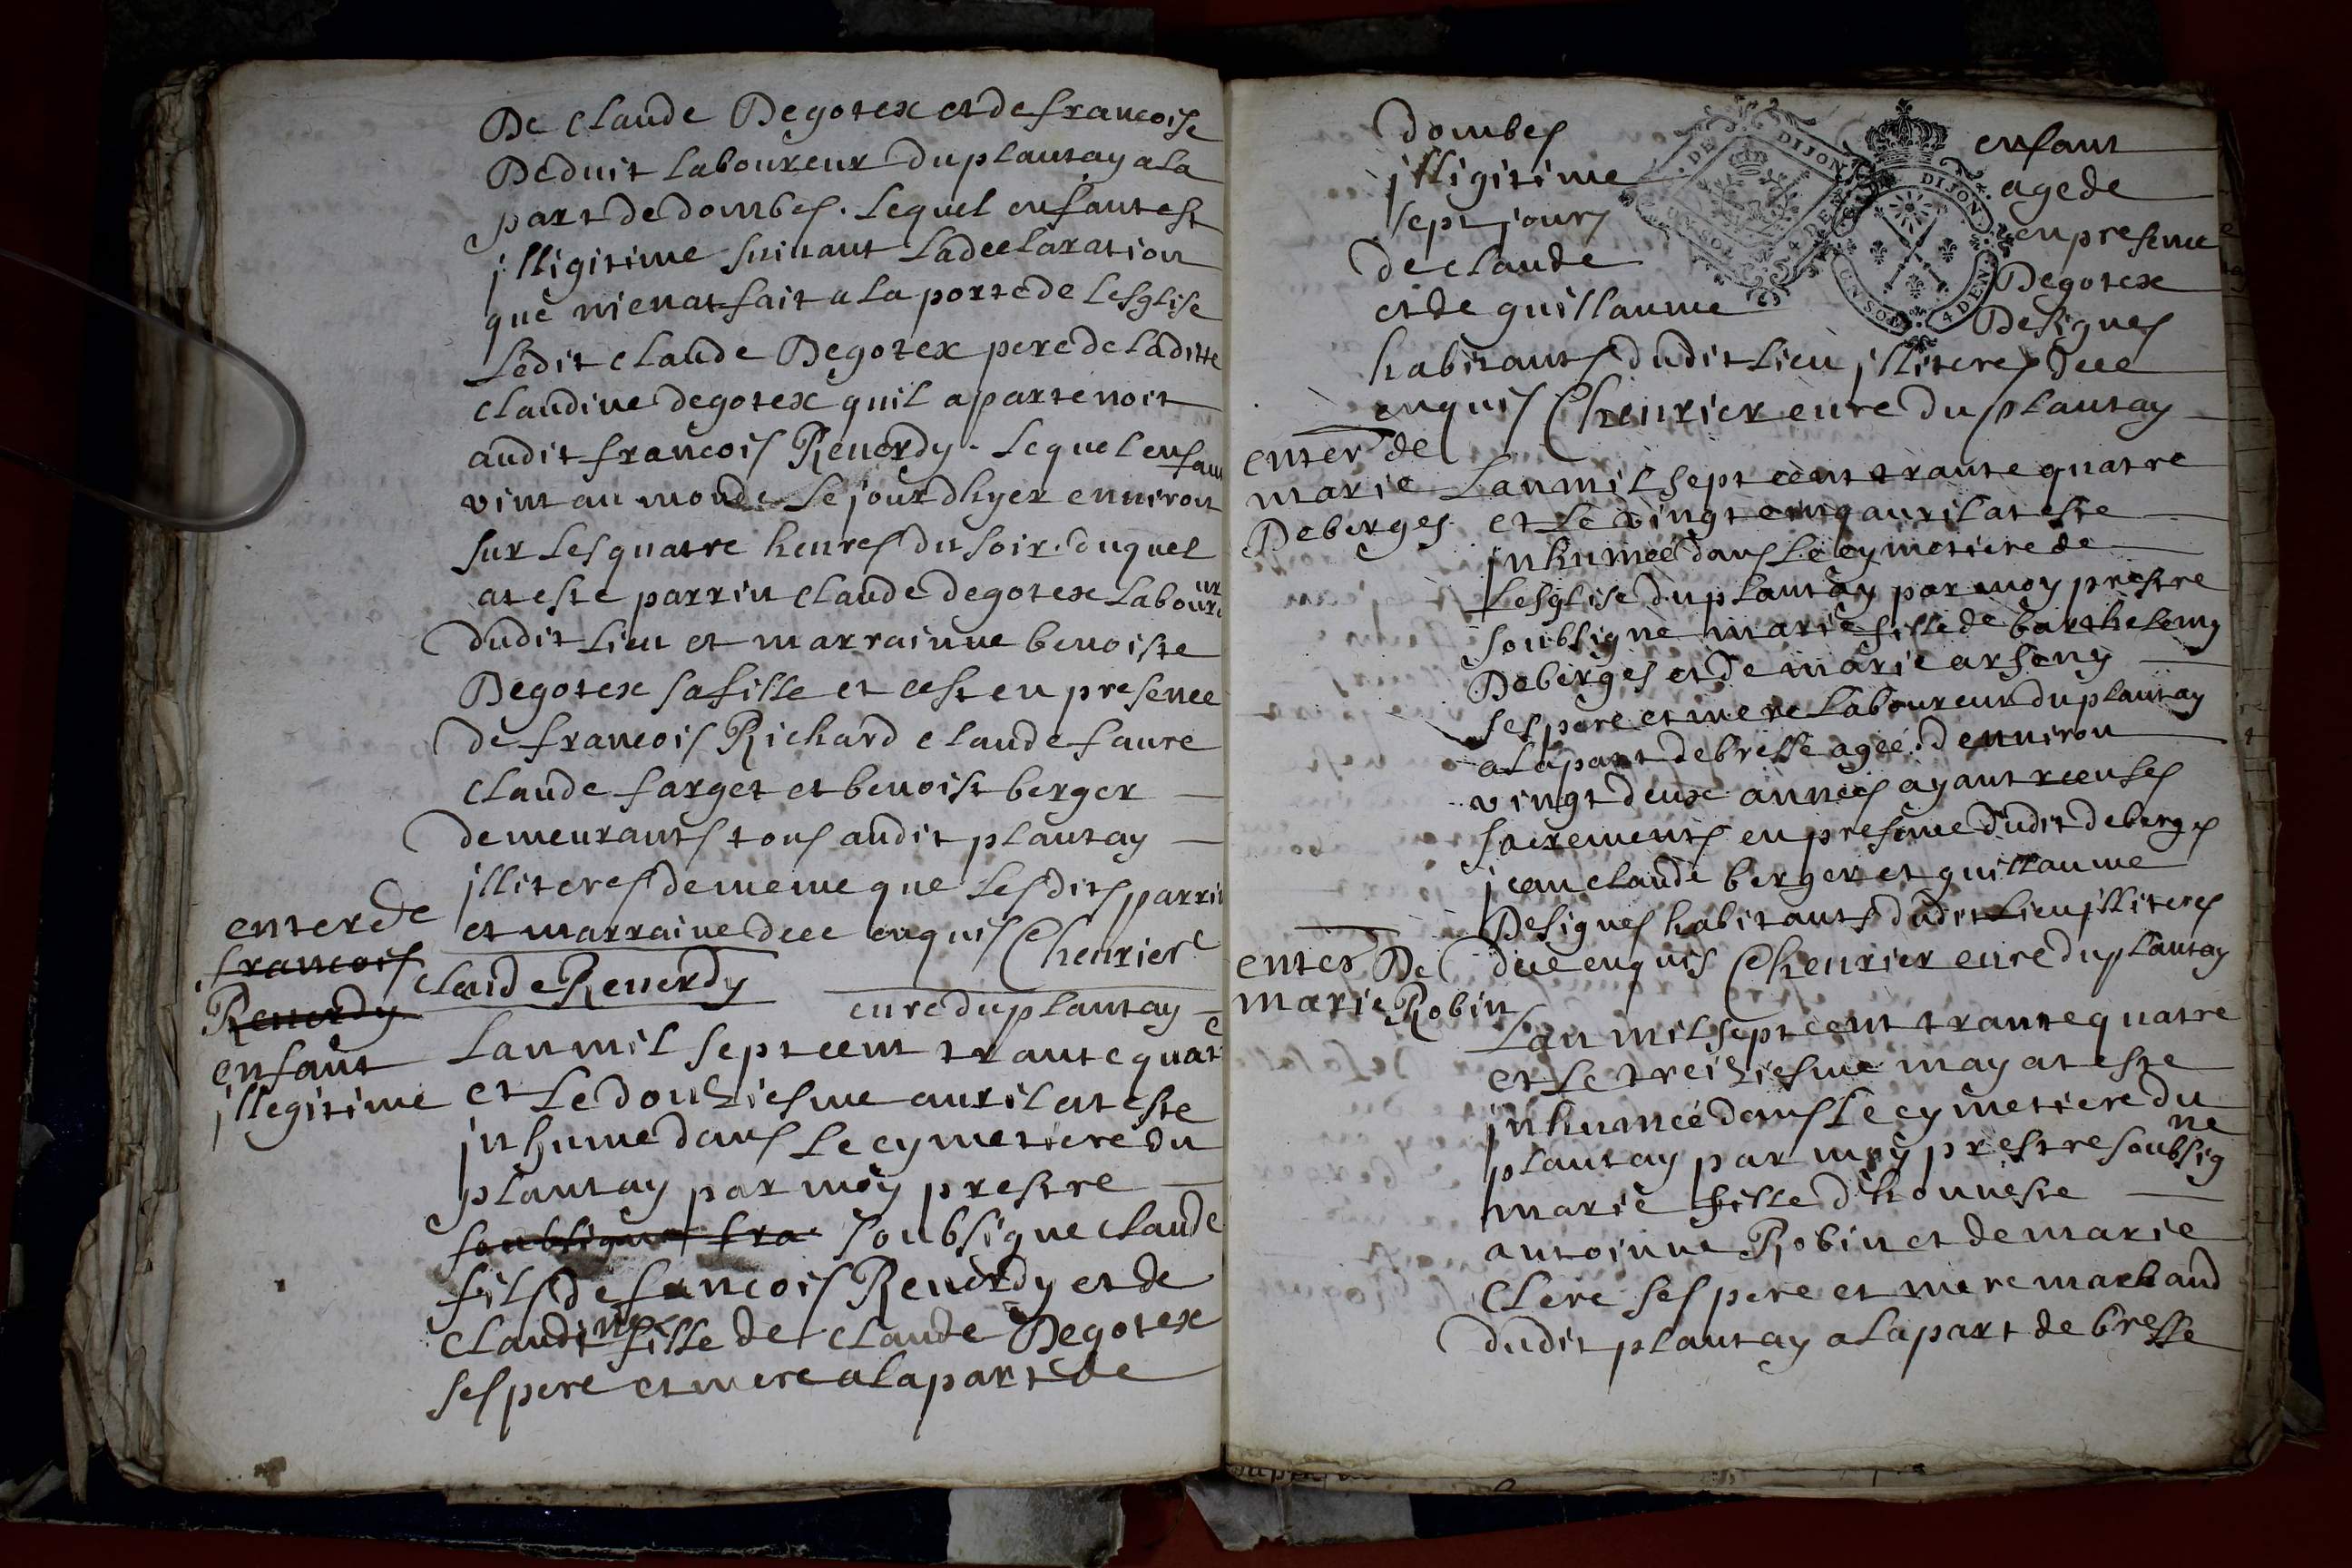 De Claude Degotex et de francoise
Deduit laboureur du plantay a la
part de dombes. Lequel enfant est
jlligitime suiuant La declaration
que m'en at fait a la porte de Lesglise
Ledit Claude Degotex pere de laditte
Claudine degotex quil apartenoit
audit francois Renerdy. Lequel enfant
vint au monde Le jourdhyer enuiron
sur Les quatre heures du soir. duquel
at este parrin Claude degotex Laboureur
dudit Lieu et marrainne benoiste
Degotex sa fille et cest en presence
de francois Richard Claude faure
Claude farget et benoist berger
demeurants tous audit plantay
jlliteres de meme que Lesdits parrin
et marraine de ce enquis Cheurier
cure du plantay
enter de
francois
Renerdy Claude Renerdy
enfant
jllegitime
Lan mil sept cent trante quatre
et Le douziesme auril at este
jnhume dans Le cymetiere du
plantay par moy prestre
soubsigne fra soubsigne Claude
fils de francois Renerdy et de
Claudine fille de Claude Degotex
ses pere et mere a la part de
dombes enfant
jlligitime age de
sept jours en presence
de Claude Degotex
et de guillaume Designes
habitants dudit Lieu jlliteres de ce
enquis Cheurier cure du plantay
DE DIJON
4 DEN
DIJON
4 DEN
enter de
marie
Deberges
Lan mil sept cent trante quatre
et Le vingt cinq auril at este
jnhumée dans Le cymetiere de
Lesglise du plantay par moy prestre
soubsigne marie fille de barthelemy
Deberges et de marie arseny
ses pere et mere Laboureur du plantay
a La part de bresse agée d'enuiron
vingt deux années ayant receu ses
sacrements en presence dudit deberges
jean Claude berger et guillaume
Designes habitants dudit Lieu jlliteres
de ce enquis Cheurier cure du plantay
enter De
marie Robin
Lan mil sept cent trante quatre
et Le treiziesme may at este
jnhumée dans Le cymetiere du
plantay par moy prestre soubsigne
marie fille d'honneste
antoinne Robin et de marie
Clere ses pere et mere marchand
dudit plantay a La part de bresse